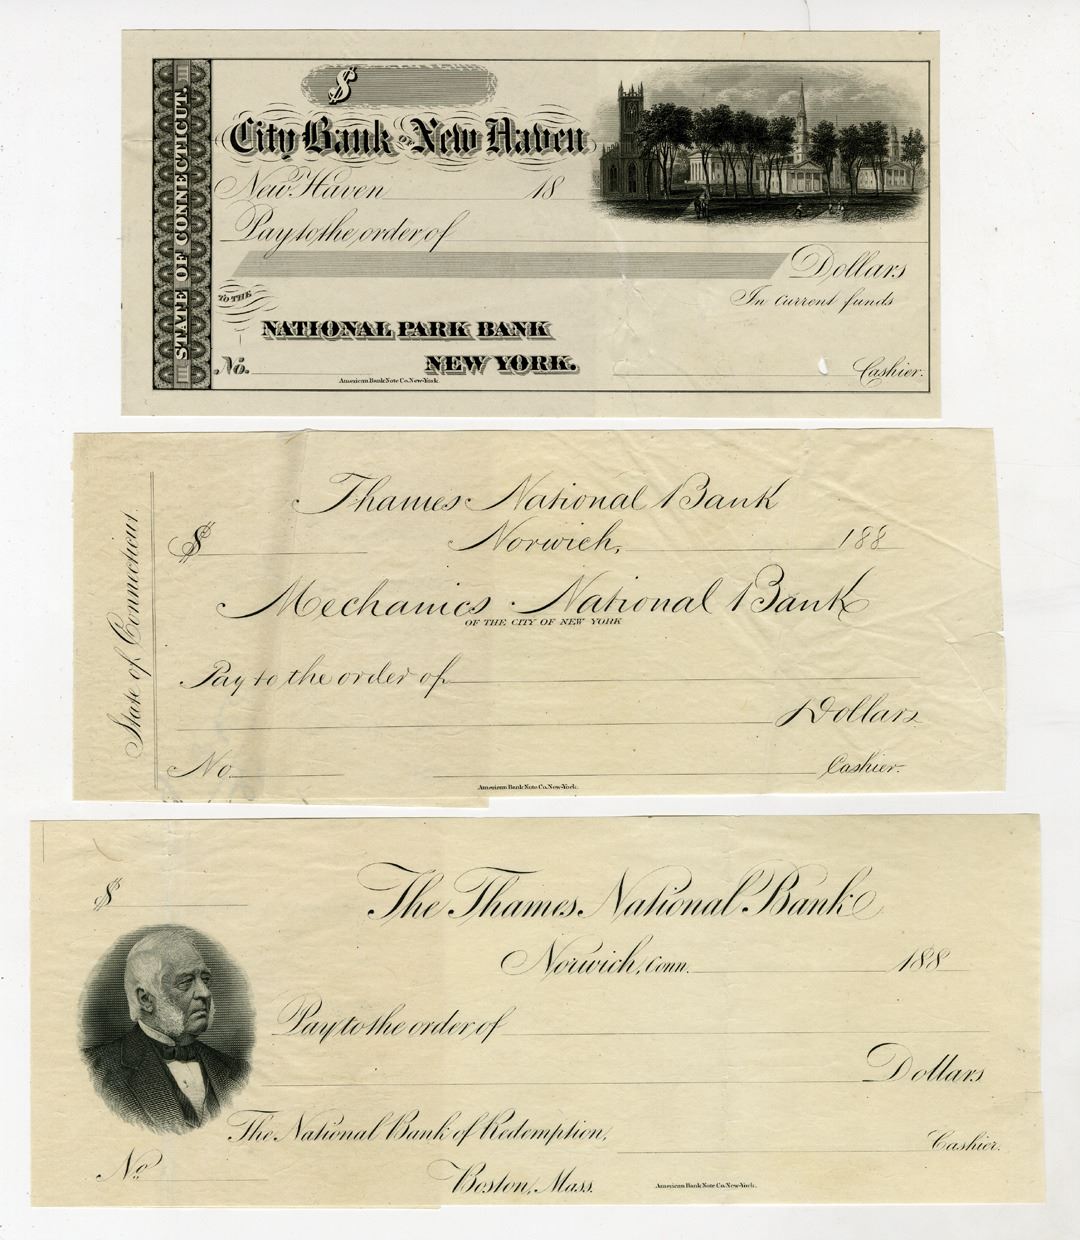 STATE OF CONNECTICUT.
$
City Bank OF New Haven
New Haven 18
Pay to the order of
Dollars
In current funds
TO THE
NATIONAL PARK BANK
No. NEW YORK.
Cashier.
American Bank Note Co. New-York.
State of Connecticut.
Thames National Bank
$ Norwich, 188
Mechanics National Bank
OF THE CITY OF NEW YORK
Pay to the order of
Dollars
No Cashier.
American Bank Note Co. New-York.
$
The Thames National Bank
Norwich, Conn. 188
Pay to the order of
Dollars
The National Bank of Redemption,
Cashier.
No.
Boston, Mass.
American Bank Note Co. New-York.